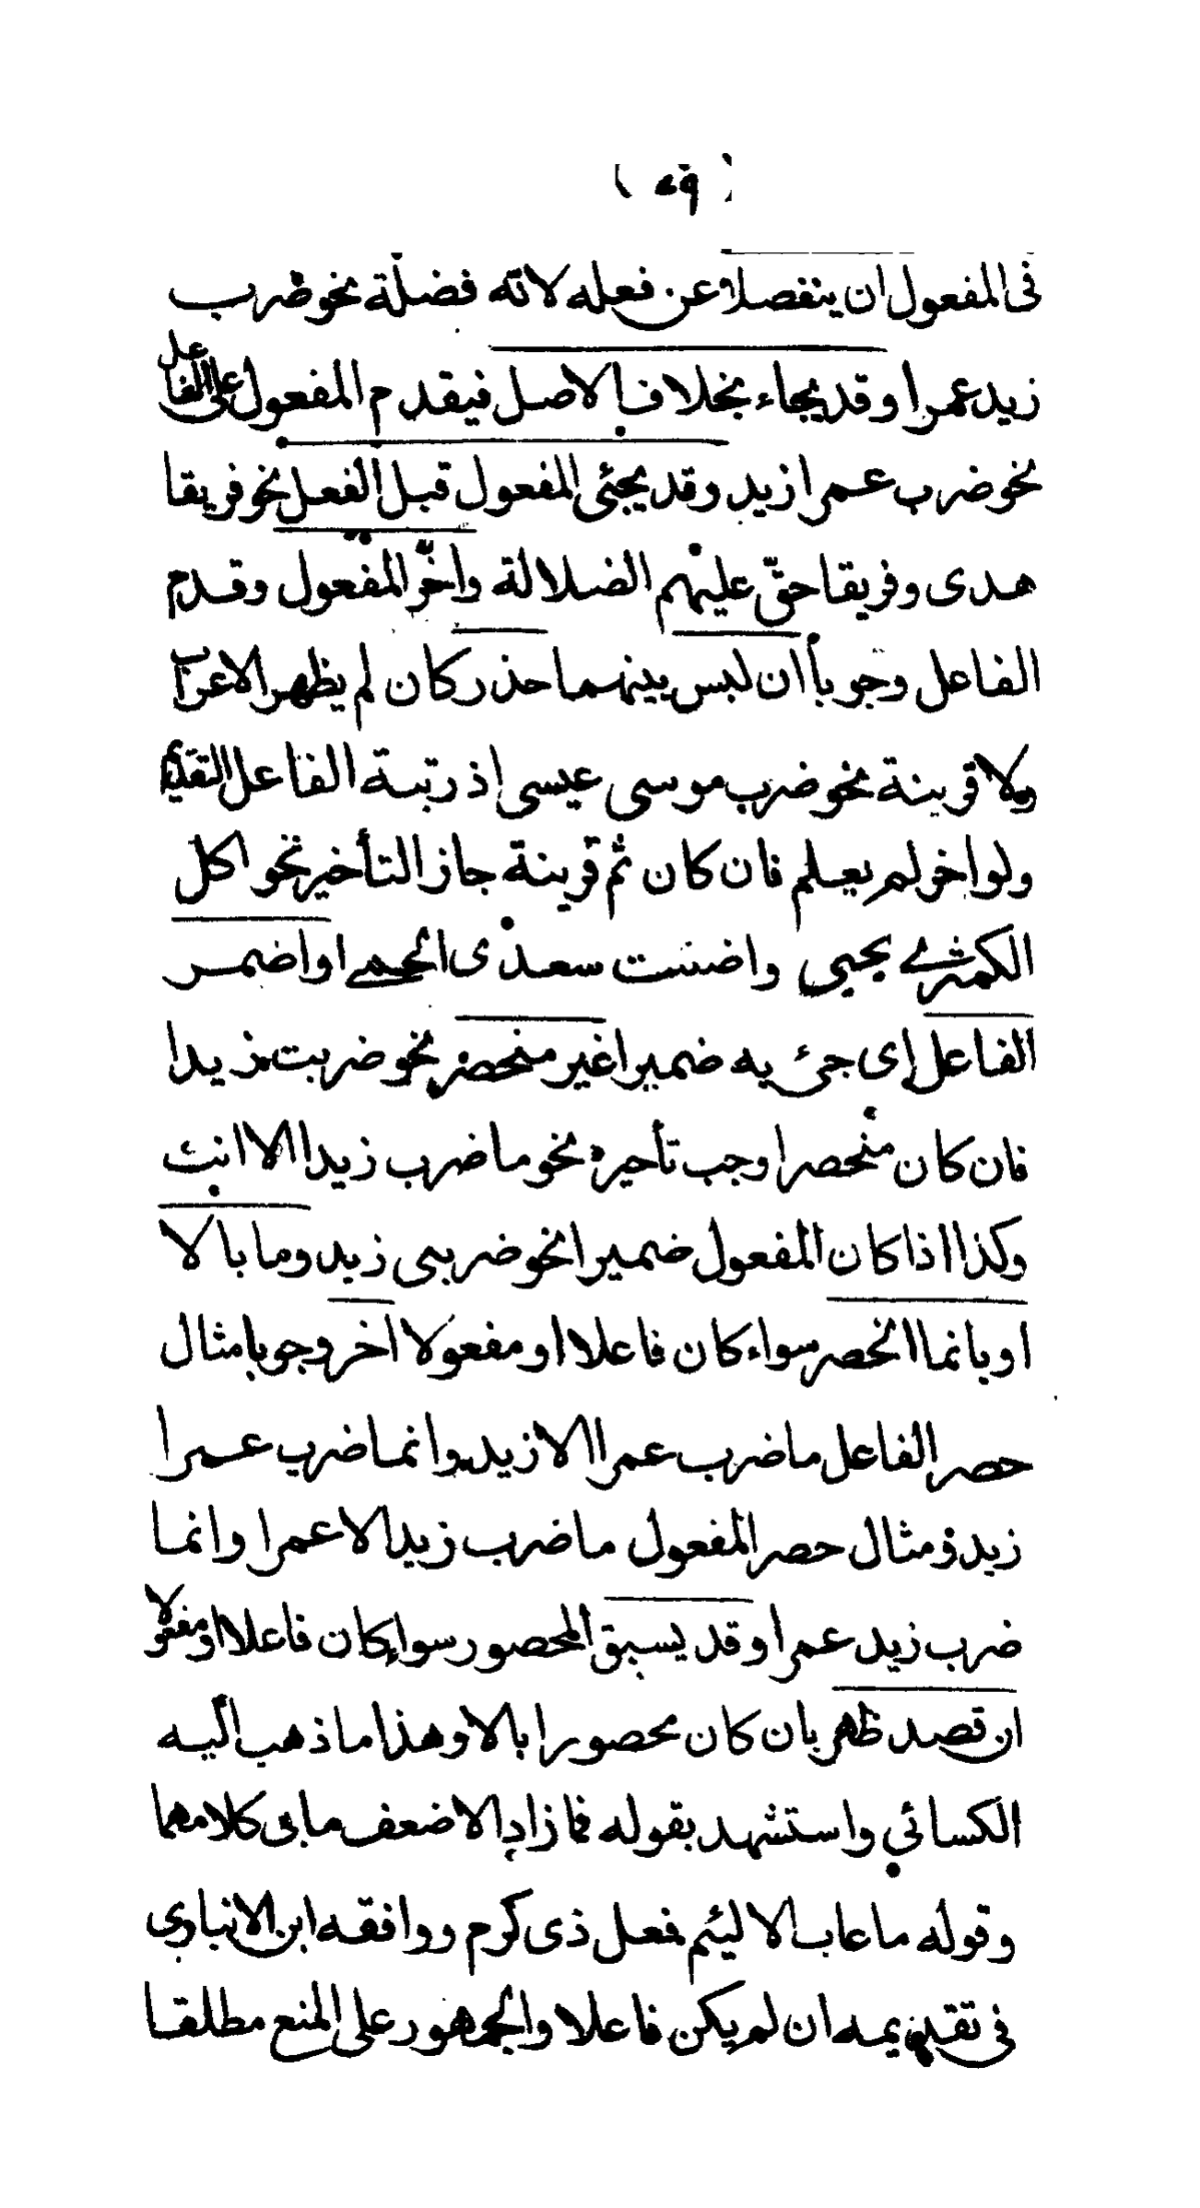 ( ٥٩ )
فى المفعول ان ينفصلا عن فعله لانّه فضلة نحو ضرب
زيد عمرا وقد يجاء بخلاف الاصل فيقدم المفعول على الفاعل
نحو ضرب عمرا زيد وقد يجئى المفعول قبل الفعل نحو فريقا
هدى وفريقا حقّ عليهم الضلالة واخّر المفعول وقدم
الفاعل وجوباً ان لبس بينهما حذر كان لم يظهر الاعراب
ولا قرينة نحو ضرب موسى عيسى اذ رتبة الفاعل التقديم
ولو اخر لم يعلم فان كان ثم قرينة جاز التأخير نحو اكل
الكمثرى يحيى واضنت سعدى الحمى او اضمر
الفاعل اى جئ به ضميرا غير منحصر نحو ضربت زيدا
فان كان منحصرا وجب تأخيره نحو ما ضرب زيدا الا انت
وكذا اذا كان المفعول ضميرا نحو ضربنى زيد وما بالا
او بانما انحصر سواء كان فاعلا او مفعولا اخر وجوبا مثال
حصر الفاعل ما ضرب عمرا الا زيد وانما ضرب عمرا
زيد ومثال حصر المفعول ما ضرب زيد الا عمرا وانما
ضرب زيد عمرا وقد يسبق المحصور سواء كان فاعلا او مفعولا
ان قصد ظهر بان كان محصورا بالا وهذا ما ذهب اليه
الكسائي واستشهد بقوله فما زاد الا ضعف مابى كلامها
وقوله ما عاب الا لئيم فعل ذى كرم ووافقه ابن الانبارى
فى تقديمه ان لم يكن فاعلا والجمهور على المنع مطلقا